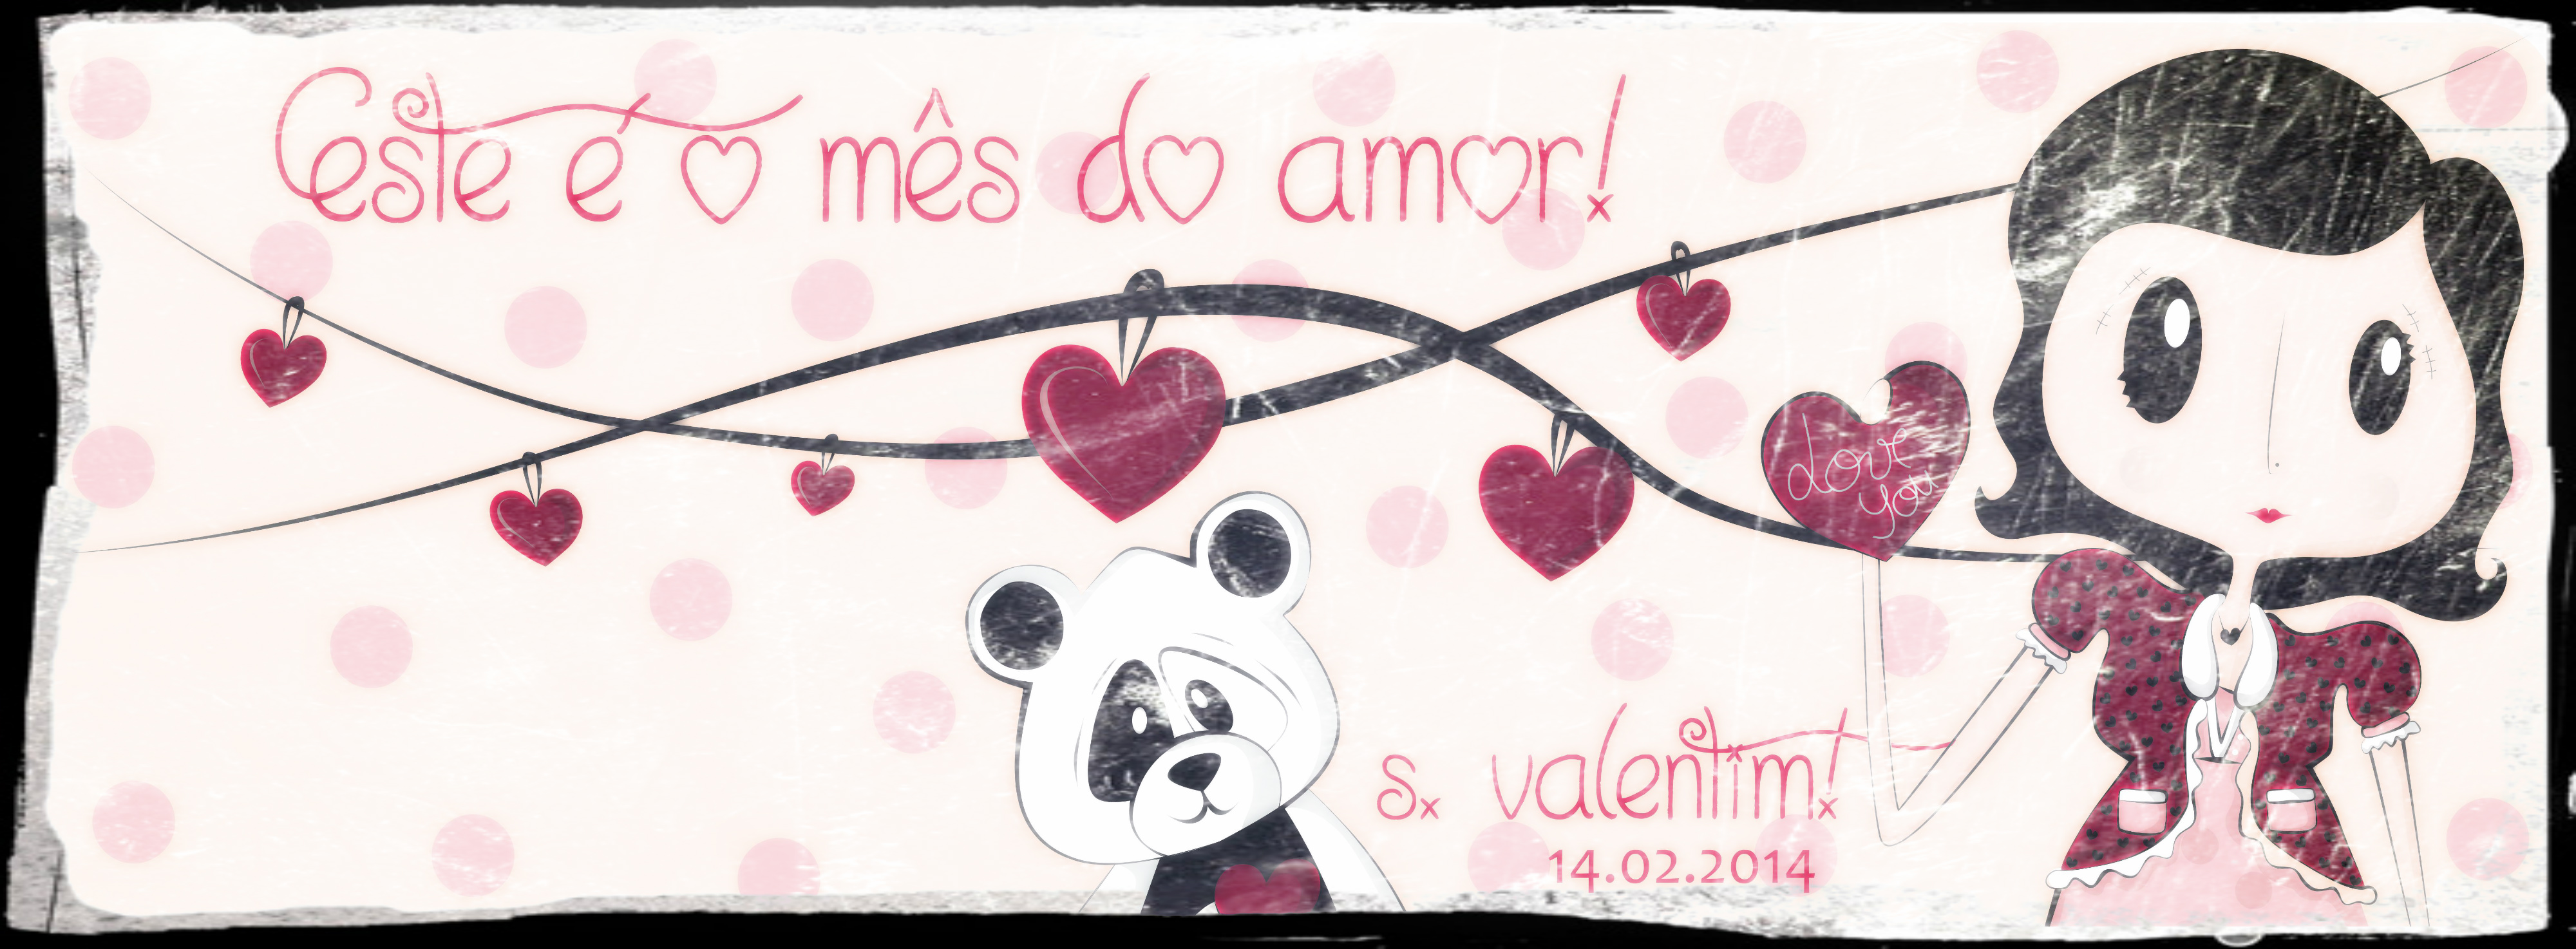 Este é o mês do amor!
love
you
s. valentim!
14.02.2014